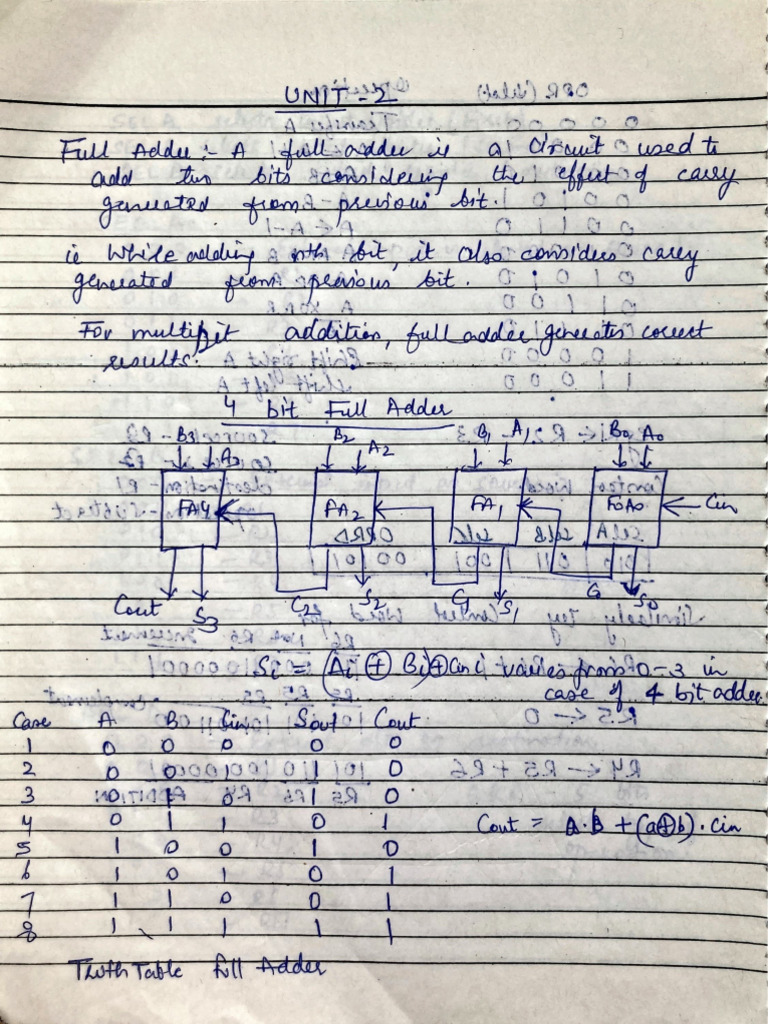 UNIT - 2
Full Adder :- A full adder is a circuit used to
add two bits considering the effect of carry
generated from previous bit.
ie While adding nth bit, it also considers carry
generated from previous bit.
For multibit addition, full adder generates correct
results.
4 bit Full Adder
B3 A3 B2 A2 B1 A1 B0 A0
FA4 FA2 FA1 FA0 Cin
Cout S3 C2 S2 C1 S1 C0 S0
Si = (Ai ⊕ Bi) ⊕ Cin i varies from 0-3 in
case of 4 bit adder
Case A B Cin Sout Cout
1 0 0 0 0 0
2 0 0 1 1 0
3 0 1 0 1 0
4 0 1 1 0 1
Cout = A.B + (a⊕b).cin
5 1 0 0 1 0
6 1 0 1 0 1
7 1 1 0 0 1
8 1 1 1 1 1
Truth Table full Adder